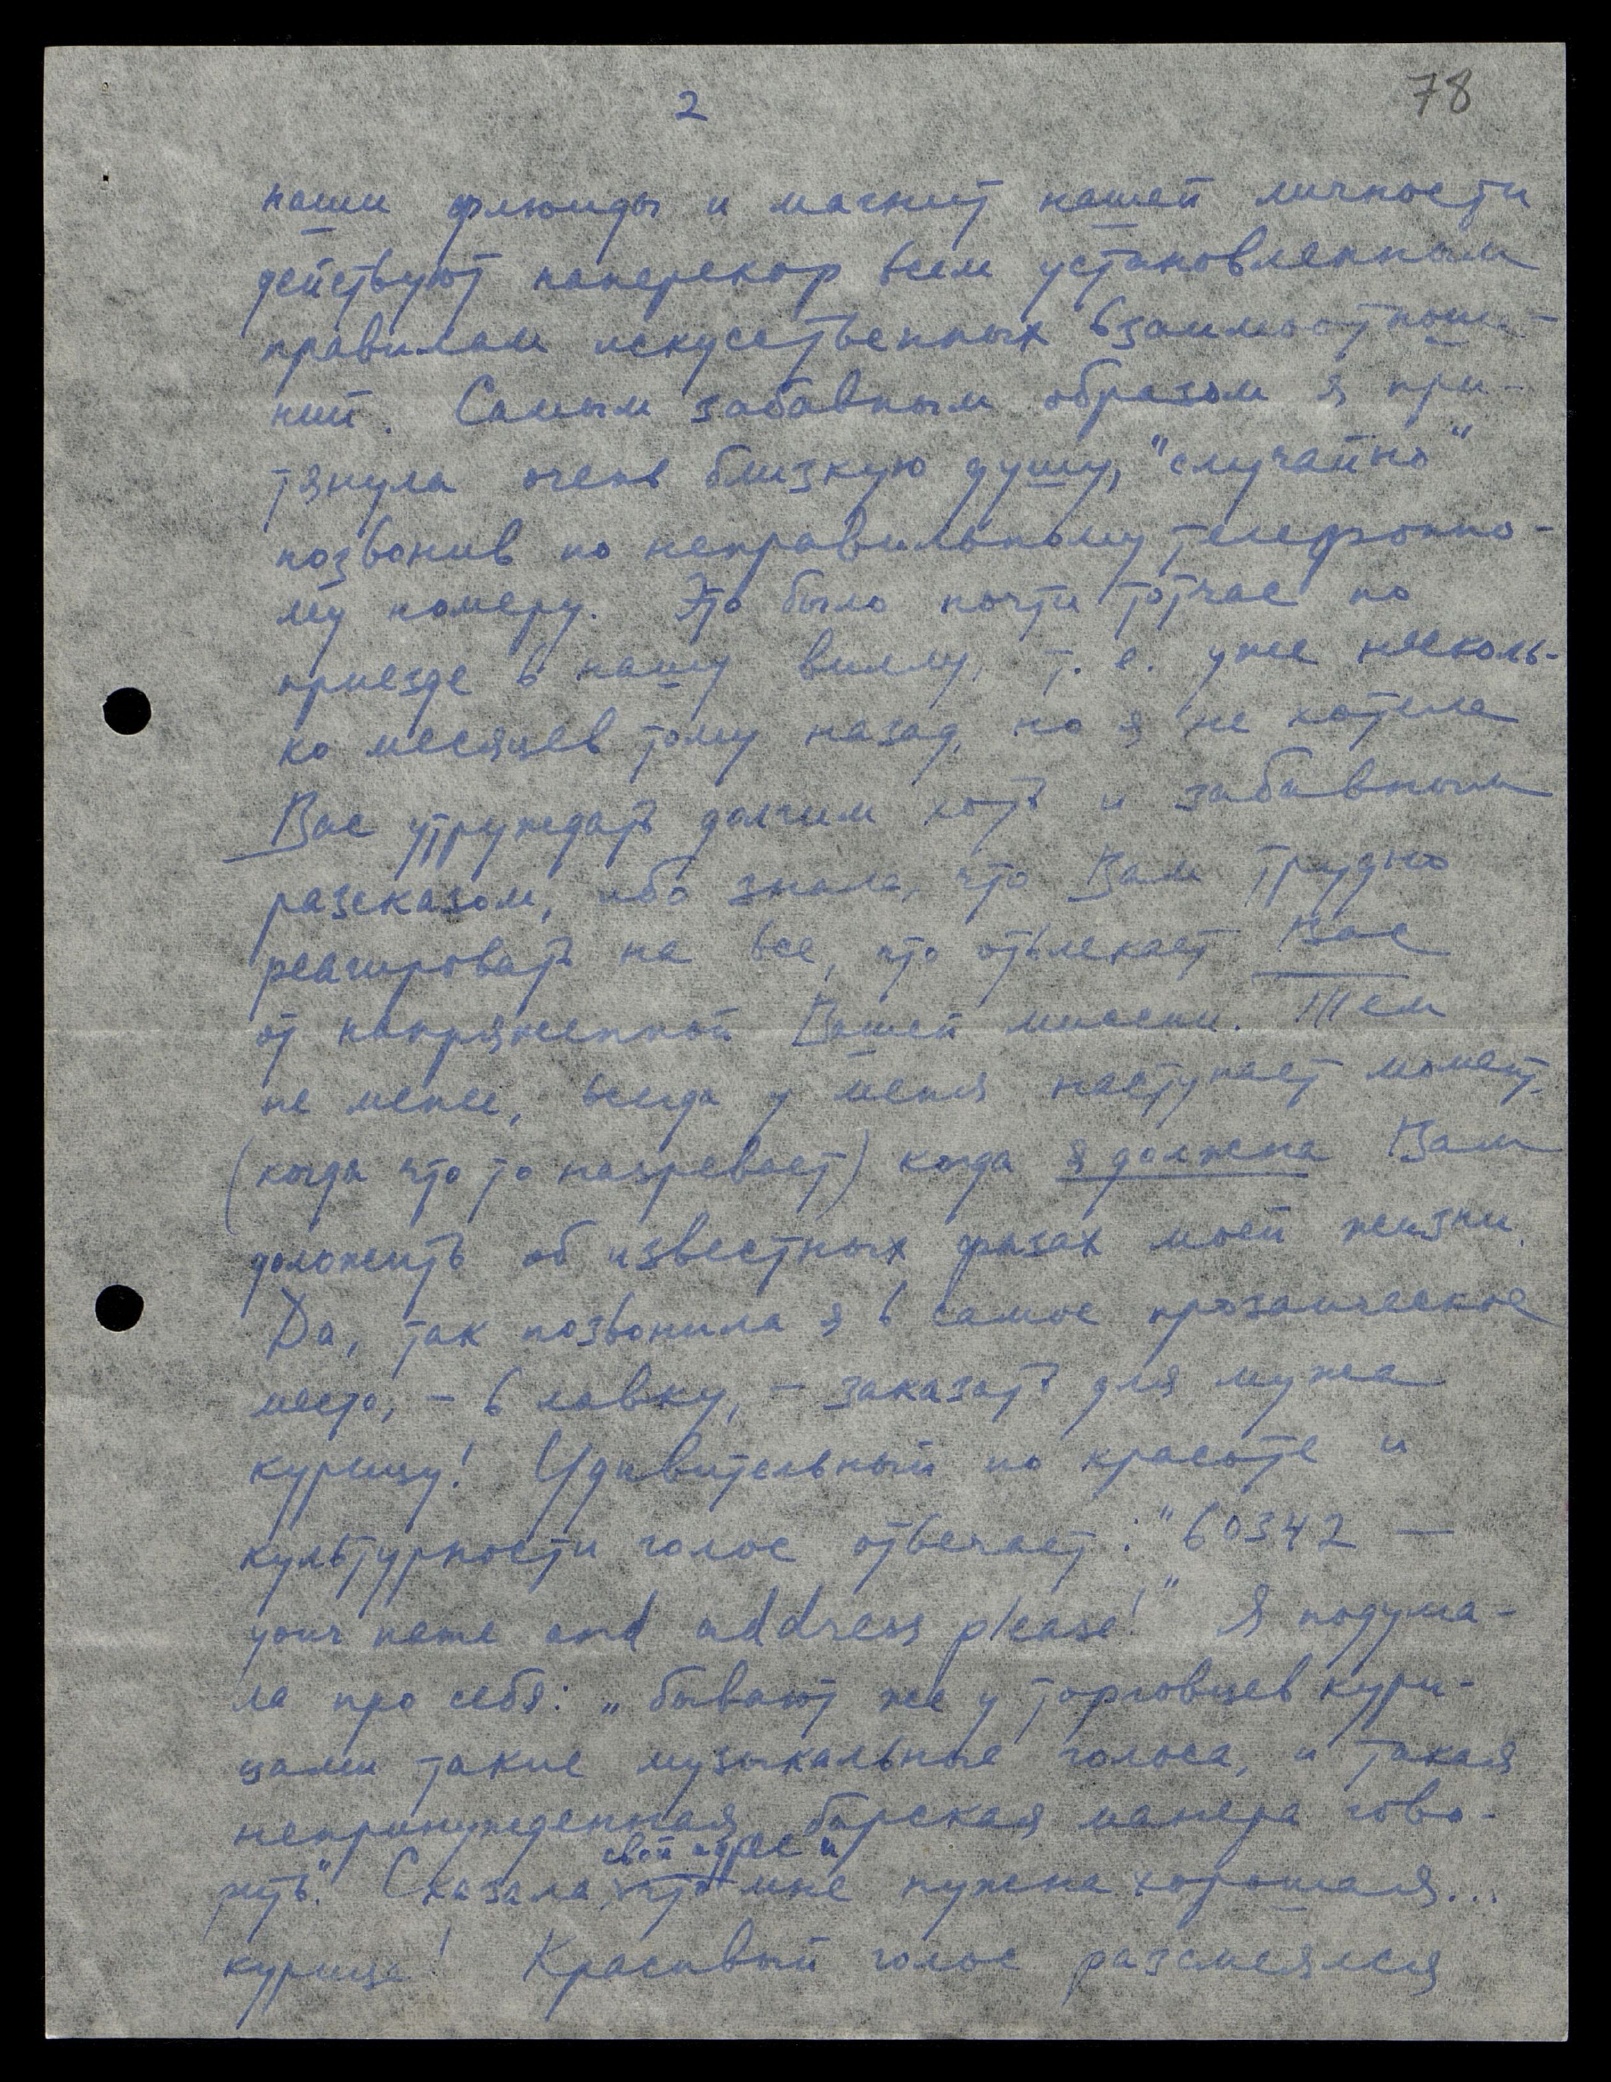 2
78
наши флюиды и магнит нашей личности
действуют наперекор всем установленным
правилам искусственных взаимоотноше-
ний. Самым забавным образом я при-
тянула очень близкую душу, "случайно"
позвонив по неправильному телефонно-
му номеру. Это было почти тотчас по
приезде в нашу виллу, т. е. уже несколь-
ко месяцев тому назад, но я не хотела
Вас утруждать долгим хотя и забавным
разсказом, ибо знала, что Вам трудно
реагировать на все, что отвлекает Вас
от напряженной Вашей миссии. Тем
не менее, всегда у меня наступает момент,
(когда что то назревает) когда я должна Вам
доложить об известных фазах моей жизни.
Да, так позвонила я в самое прозаическое
место, - в лавку, - заказать для мужа
курицу! Удивительный по красоте и
культурности голос отвечает: "60342 —
your name and address please!" Я подума-
ла про себя: „бывают же у торговцев кури-
цами такие музыкальные голоса, и такая
непринужденная, барская манера гово-
рить." Сказала свой адрес и что мне нужна хорошая...
курица! Красивый голос разсмеялся